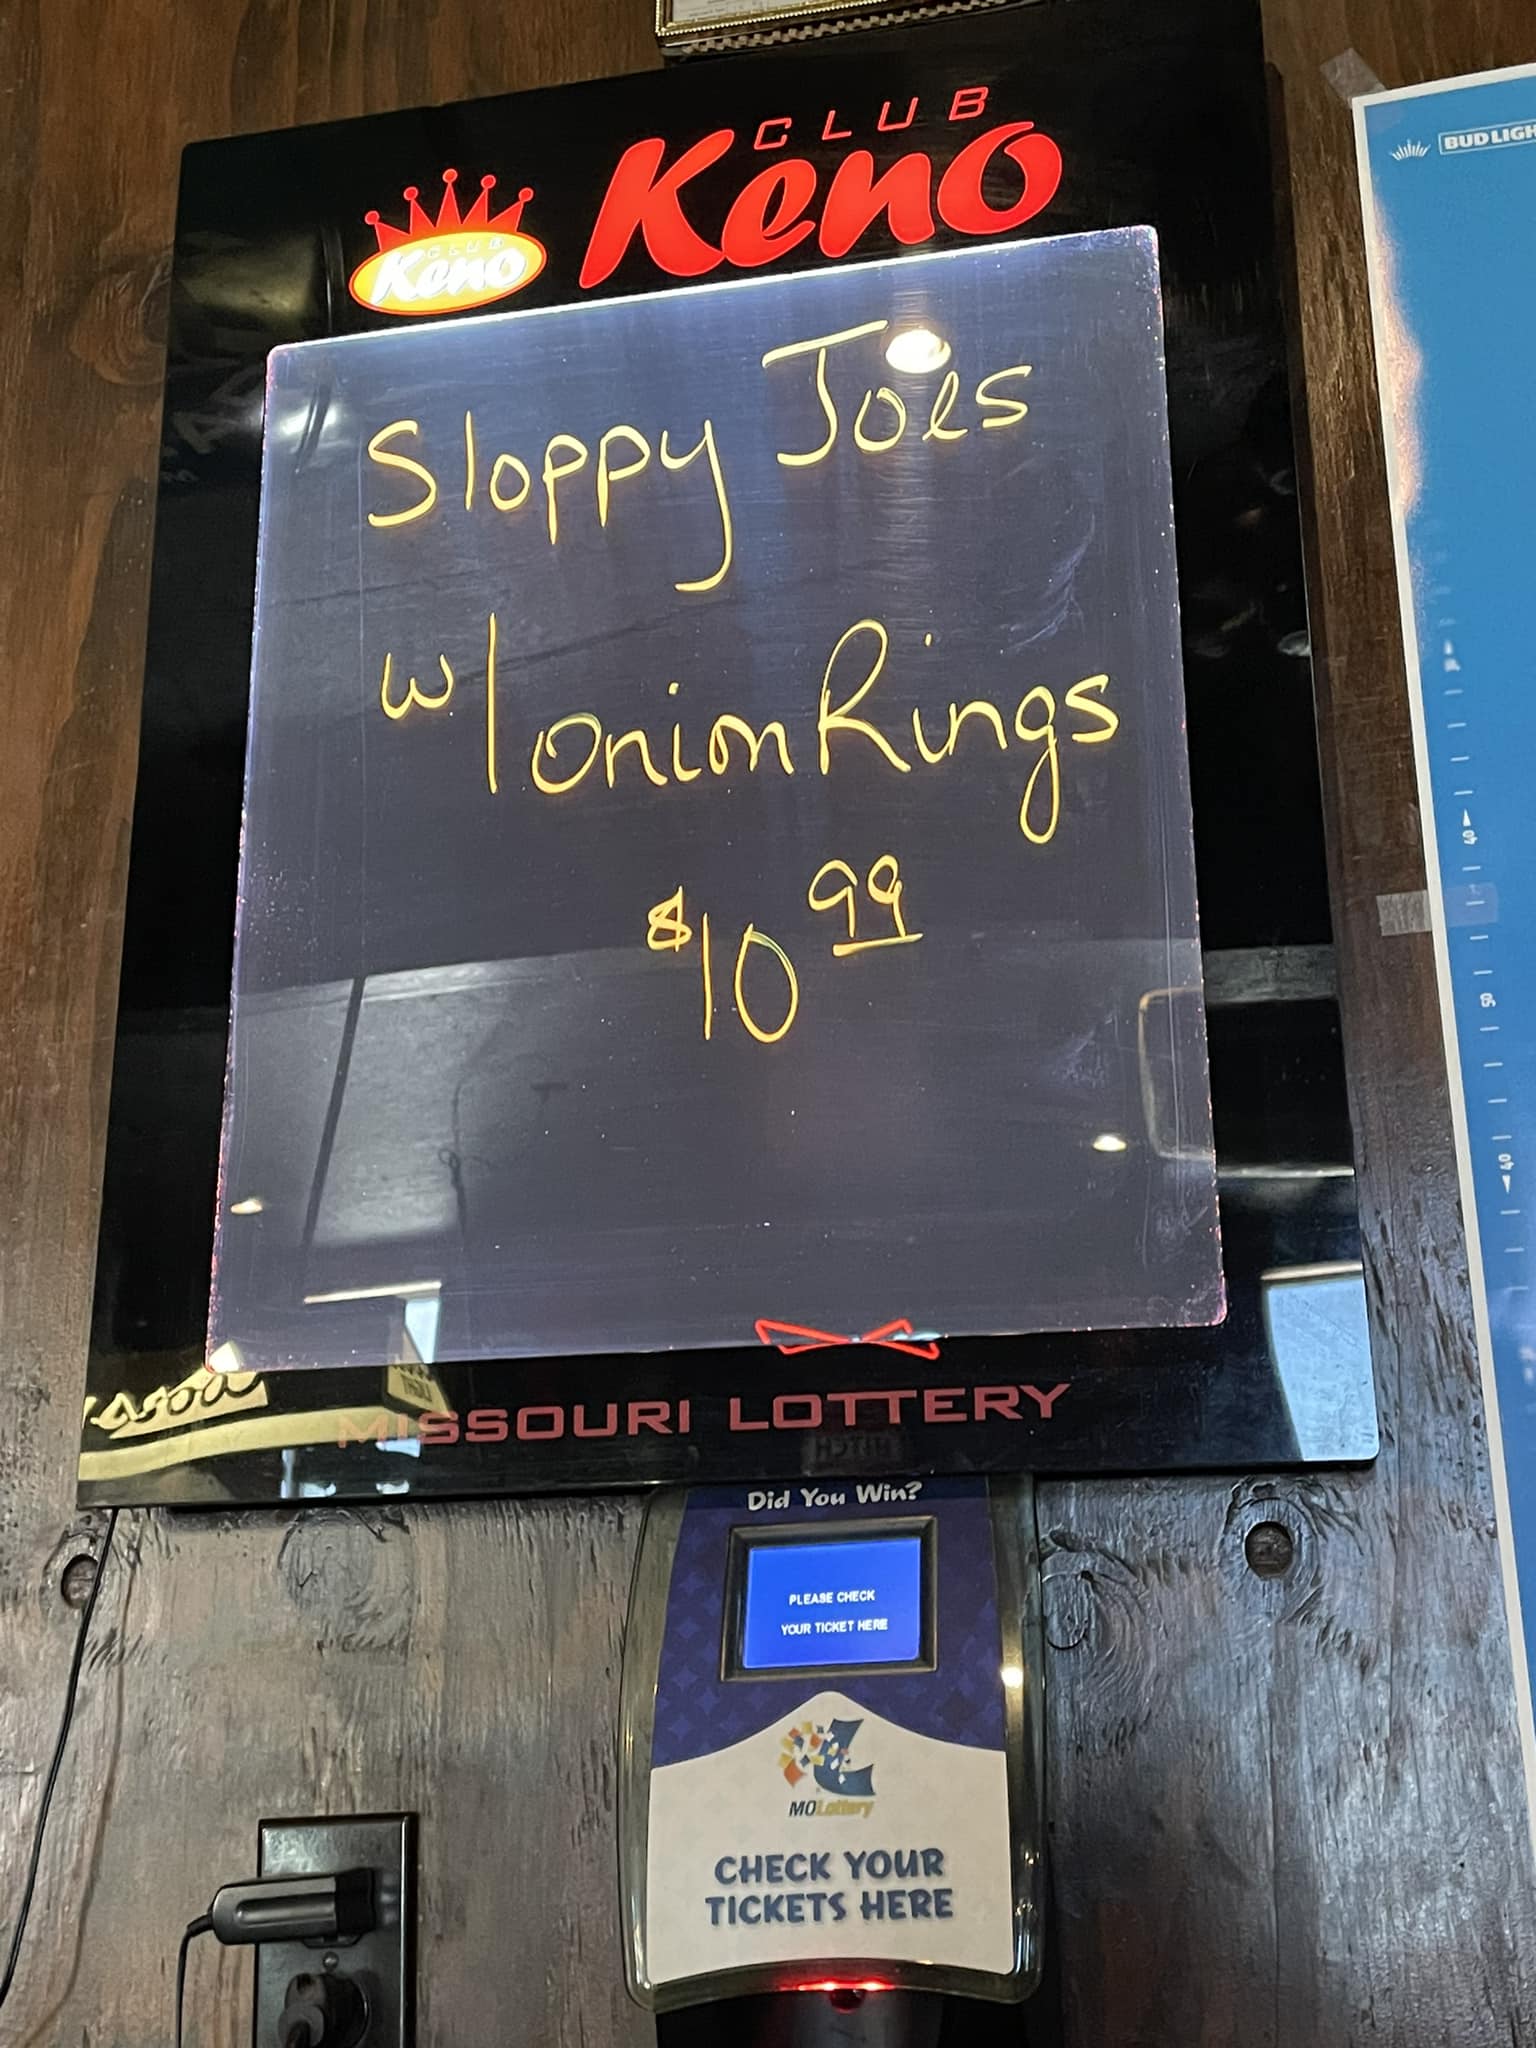 CLUB
Keno
CLUB
Keno
Sloppy Joes
w/ Onion Rings
$10 99
MISSOURI LOTTERY
Did You Win?
PLEASE CHECK
YOUR TICKET HERE
MOLottery
CHECK YOUR
TICKETS HERE
BUD LIGH
40
50
40